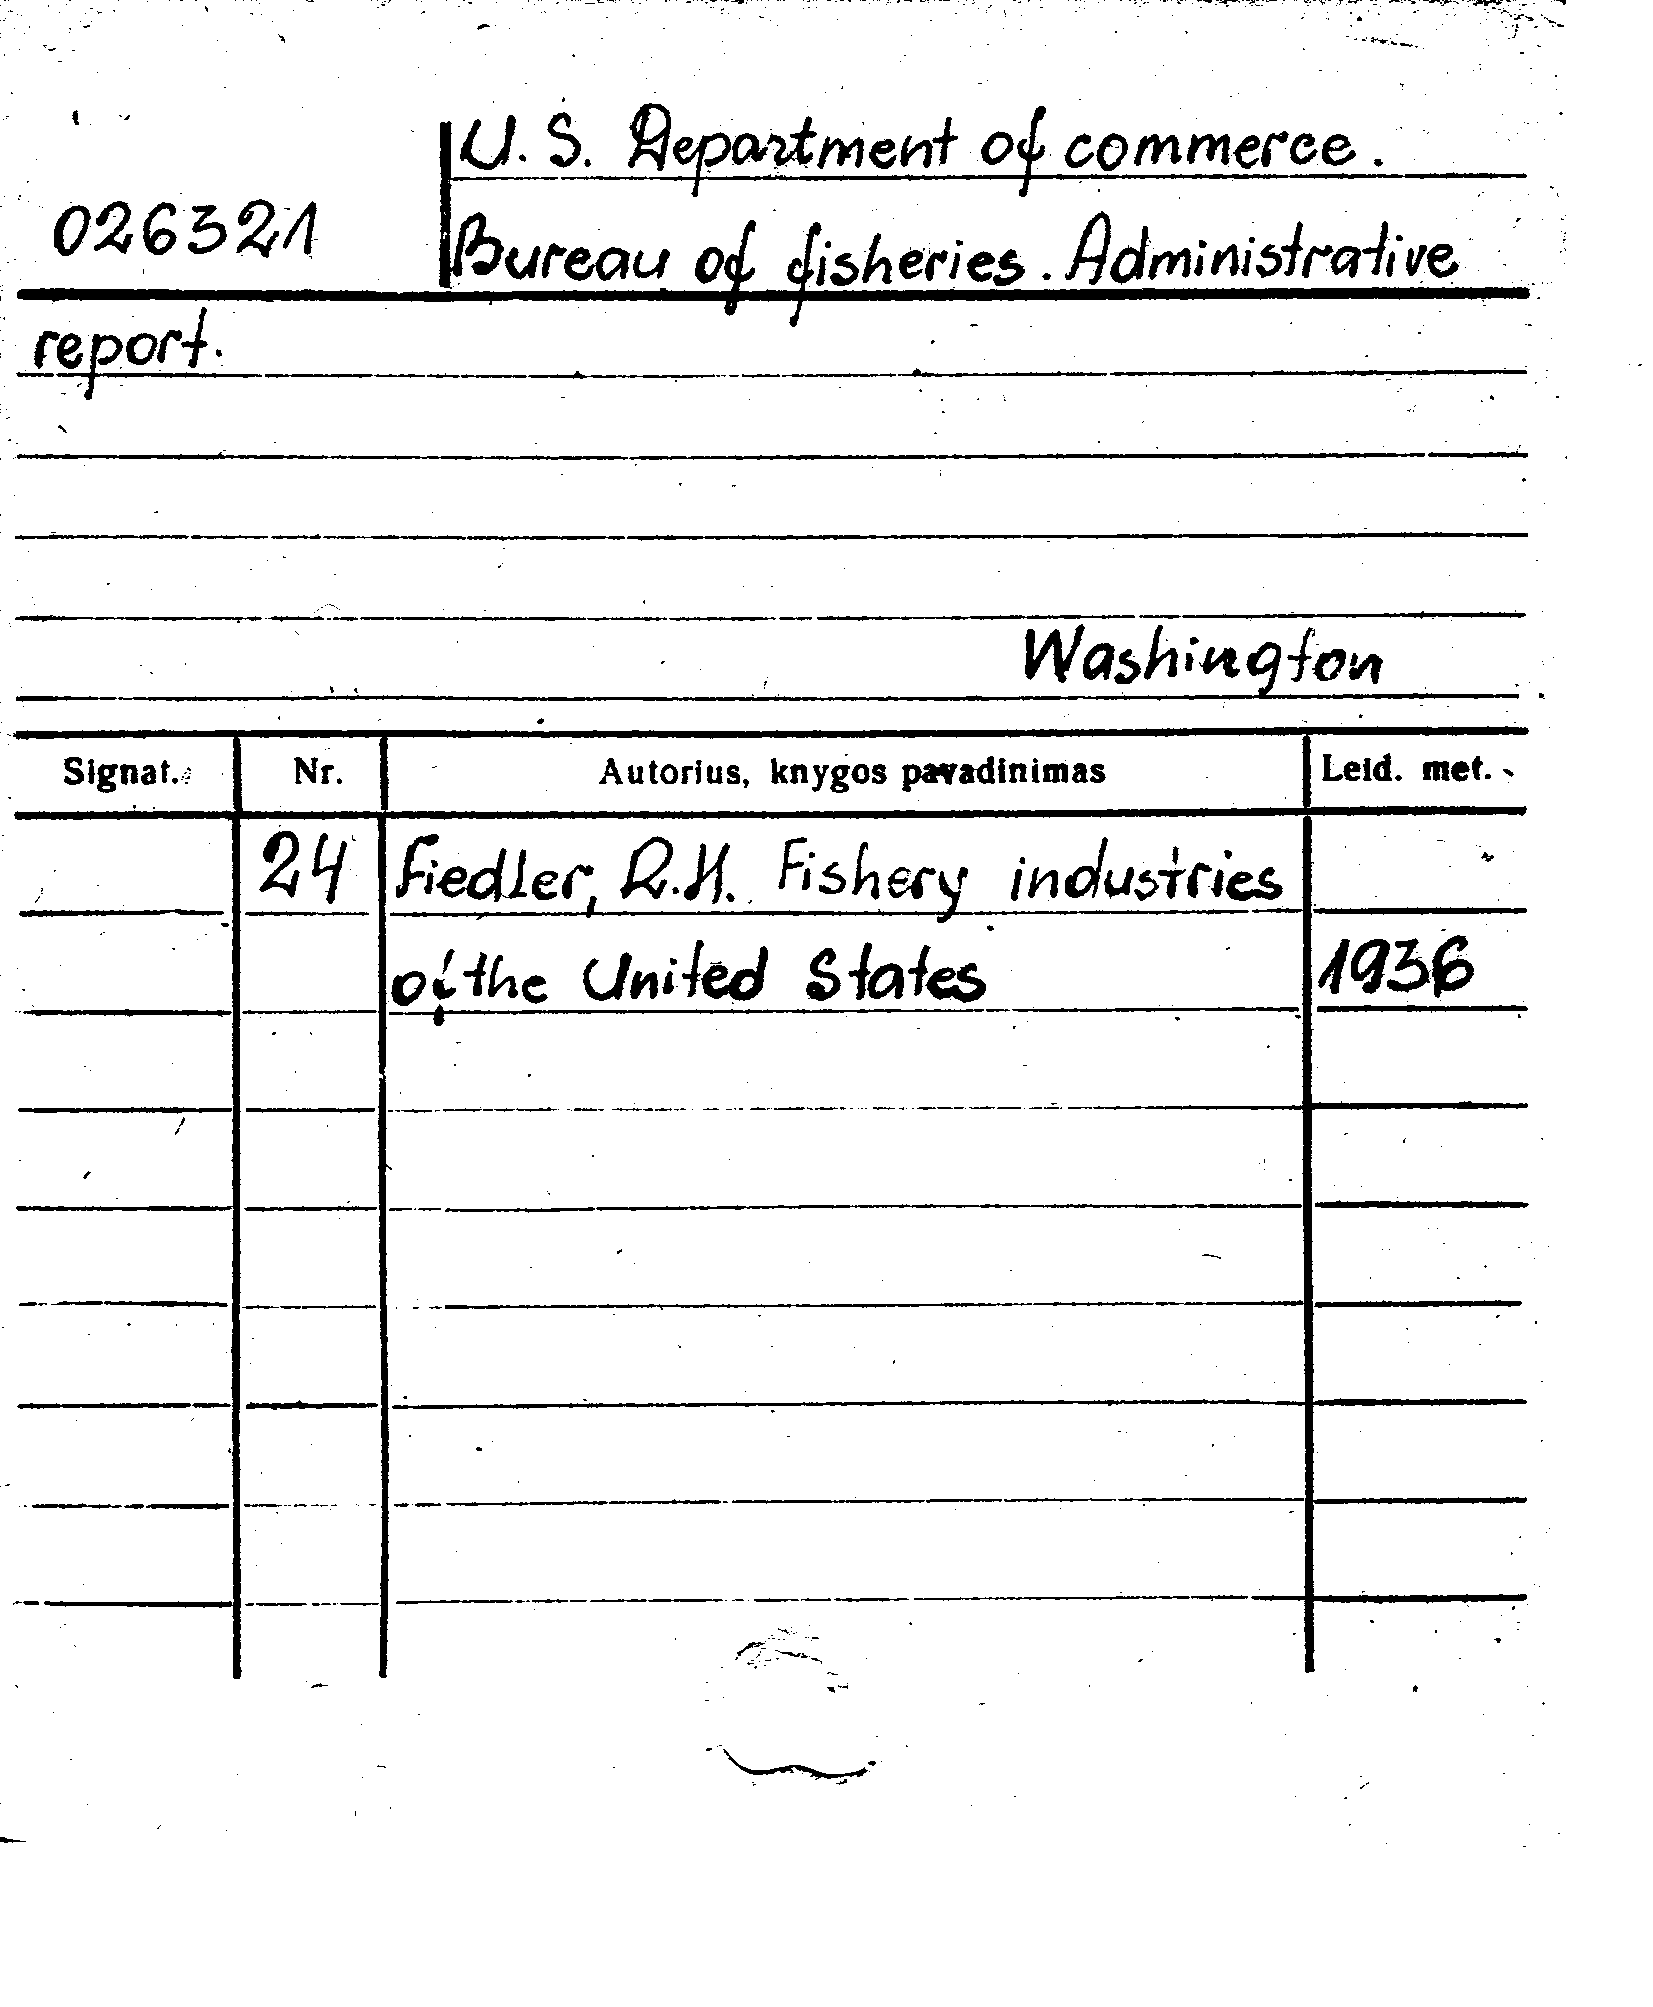 U. S. Department of commerce.
026321
Bureau of fisheries. Administrative
report.
Washington
Signat. Nr. Autorius, knygos pavadinimas Leid. met.
24 Fiedler, R.H. Fishery industries
of the United States 1936